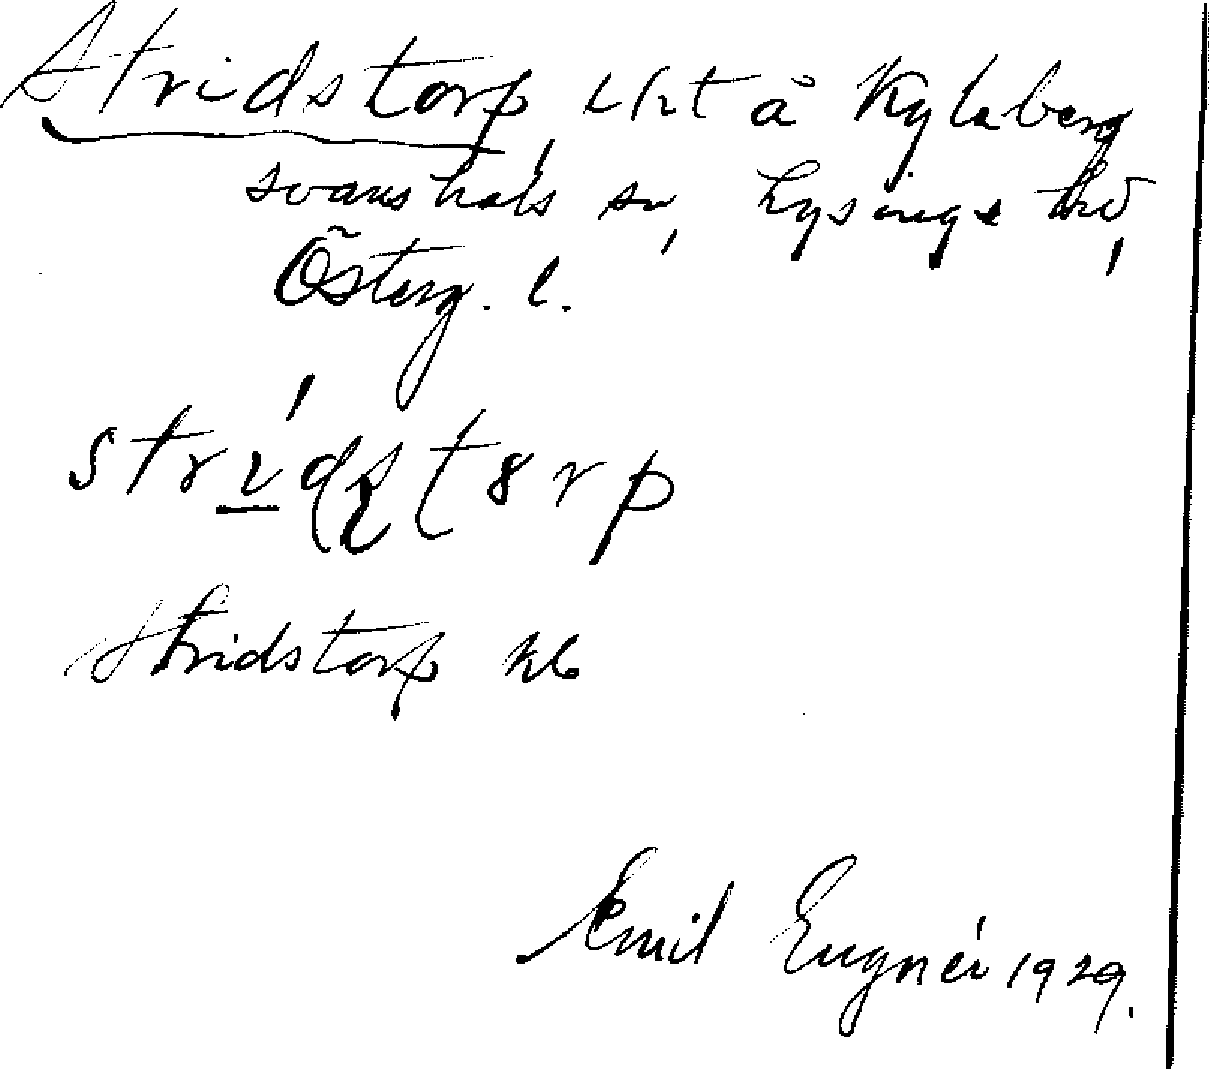 Stridstorp, lht å Kylaberg
Svanshals sn, Lysings hd,
Österg. l.
Stridstorp kb
Emil Eugnér 1929.